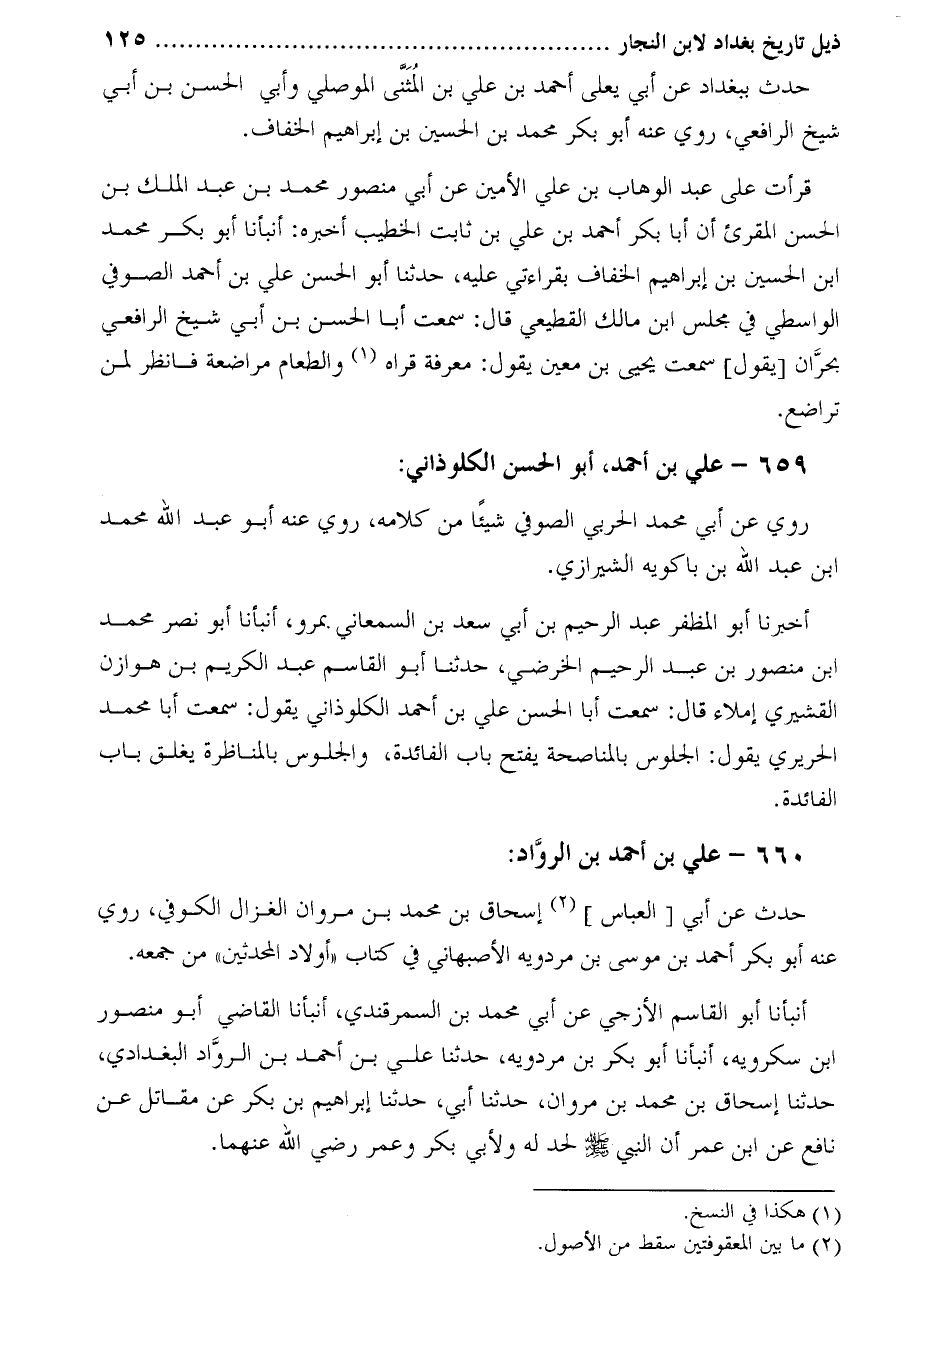 ذيل تاريخ بغداد لابن النجار ........................................................ ١٢٥
حدث ببغداد عن أبي يعلى أحمد بن علي بن المُثنَّى الموصلي وأبي الحسن بن أبي
شيخ الرافعي، روي عنه أبو بكر محمد بن الحسين بن إبراهيم الخفاف.
قرأت على عبد الوهاب بن علي الأمين عن أبي منصور محمد بن عبد الملك بن
الحسن المقرئ أن أبا بكر أحمد بن علي بن ثابت الخطيب أخبره: أنبأنا أبو بكر محمد
ابن الحسين بن إبراهيم الخفاف بقراءتي عليه، حدثنا أبو الحسن علي بن أحمد الصوفي
الواسطي في مجلس ابن مالك القطيعي قال: سمعت أبا الحسن بن أبي شيخ الرافعي
بحرَّان [يقول] سمعت يحيى بن معين يقول: معرفة قراه (١) والطعام مراضعة فانظر لمن
تراضع.
٦٥٩ – علي بن أحمد، أبو الحسن الكلوذاني:
روي عن أبي محمد الحربي الصوفي شيئًا من كلامه، روي عنه أبو عبد الله محمد
ابن عبد الله بن باكويه الشيرازي.
أخبرنا أبو المظفر عبد الرحيم بن أبي سعد بن السمعاني بمرو، أنبأنا أبو نصر محمد
ابن منصور بن عبد الرحيم الخرضي، حدثنا أبو القاسم عبد الكريم بن هوازن
القشيري إملاء قال: سمعت أبا الحسن علي بن أحمد الكلوذاني يقول: سمعت أبا محمد
الحريري يقول: الجلوس بالمناصحة يفتح باب الفائدة، والجلوس بالمناظرة يغلق باب
الفائدة.
٦٦٠ – علي بن أحمد بن الروَّاد:
حدث عن أبي [ العباس ] (٢) إسحاق بن محمد بن مروان الغزال الكوفي، روي
عنه أبو بكر أحمد بن موسى بن مردويه الأصبهاني في كتاب «أولاد المحدثين» من جمعه.
أنبأنا أبو القاسم الأزجي عن أبي محمد بن السمرقندي، أنبأنا القاضي أبو منصور
ابن سكرويه، أنبأنا أبو بكر بن مردويه، حدثنا علي بن أحمد بن الروَّاد البغدادي،
حدثنا إسحاق بن محمد بن مروان، حدثنا أبي، حدثنا إبراهيم بن بكر عن مقاتل عن
نافع عن ابن عمر أن النبي ﷺ لحد له ولأبي بكر وعمر رضي الله عنهما.
(١) هكذا في النسخ.
(٢) ما بين المعقوفتين سقط من الأصول.